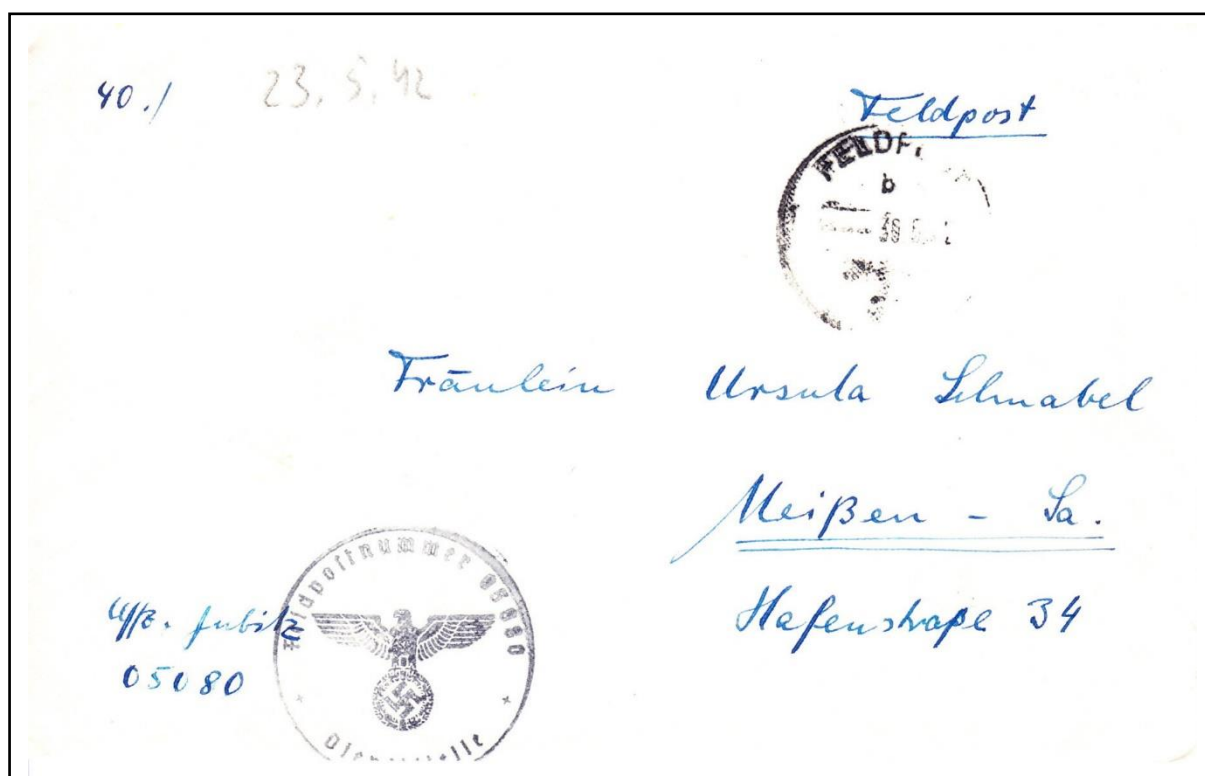 40./ 23.5.42
Feldpost
b
Fräulein Ursula Schnabel
Meißen - Sa.
Hafenstraße 34
Uffz. Jubitz
05080
Feldpostnummer 05080
Dienststelle